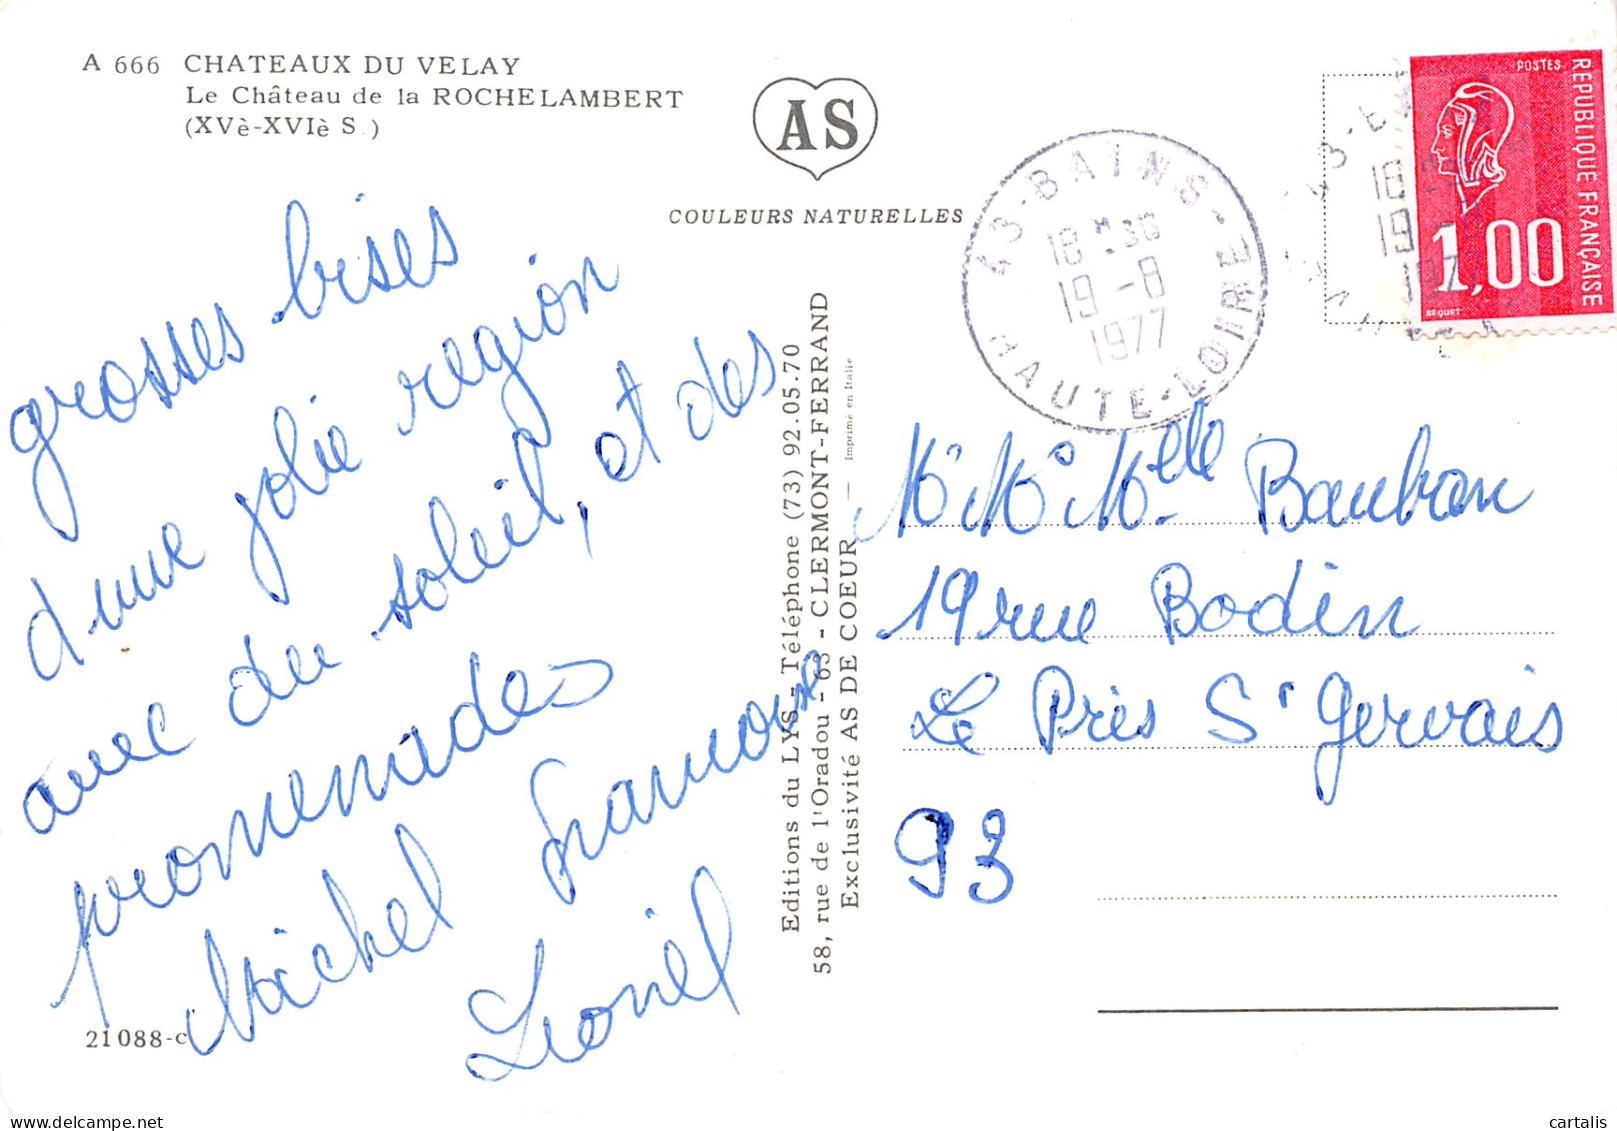 A 666 CHATEAUX DU VELAY
Le Château de la ROCHELAMBERT
(XVè-XVIè S.)
AS
COULEURS NATURELLES
grosses bises
d'une jolie region
avec du soleil, et des
promenades
Michel Francoise
Lionel
21088-c
Editions du LYS - Téléphone (73) 92.05.70
58, rue de l'Oradou - 63 - CLERMONT-FERRAND
Exclusivité AS DE COEUR — Imprimé en Italie
43-BAINS-
18H30
19-8
1977
HAUTE-LOIRE
POSTES
REPUBLIQUE FRANÇAISE
1,00
BEQUET
Mr Me Melle Bauban
19 rue Bodin
Le Près St Gervais
93
cartalis
www.delcampe.net